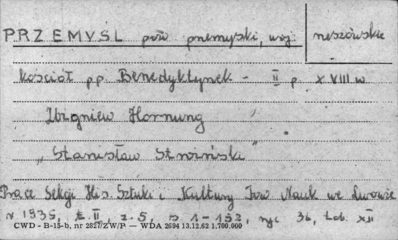 PRZEMYŚL pow przemyski, woj. rzeszowskie
kościół pp. Benedyktynek - II p. XVIII w
Zbigniew Hornung
"Stanisław Stroiński"
Prace Sekcji His. Sztuki i Kultury Tow Nauk we Lwowie
r 1935, t. II, z. 5, s 1-132, ryc 36, tab. XII
CWD - B-15-b, nr 2827/ZW/P — WDA 2694 13.12.62 1.700.000